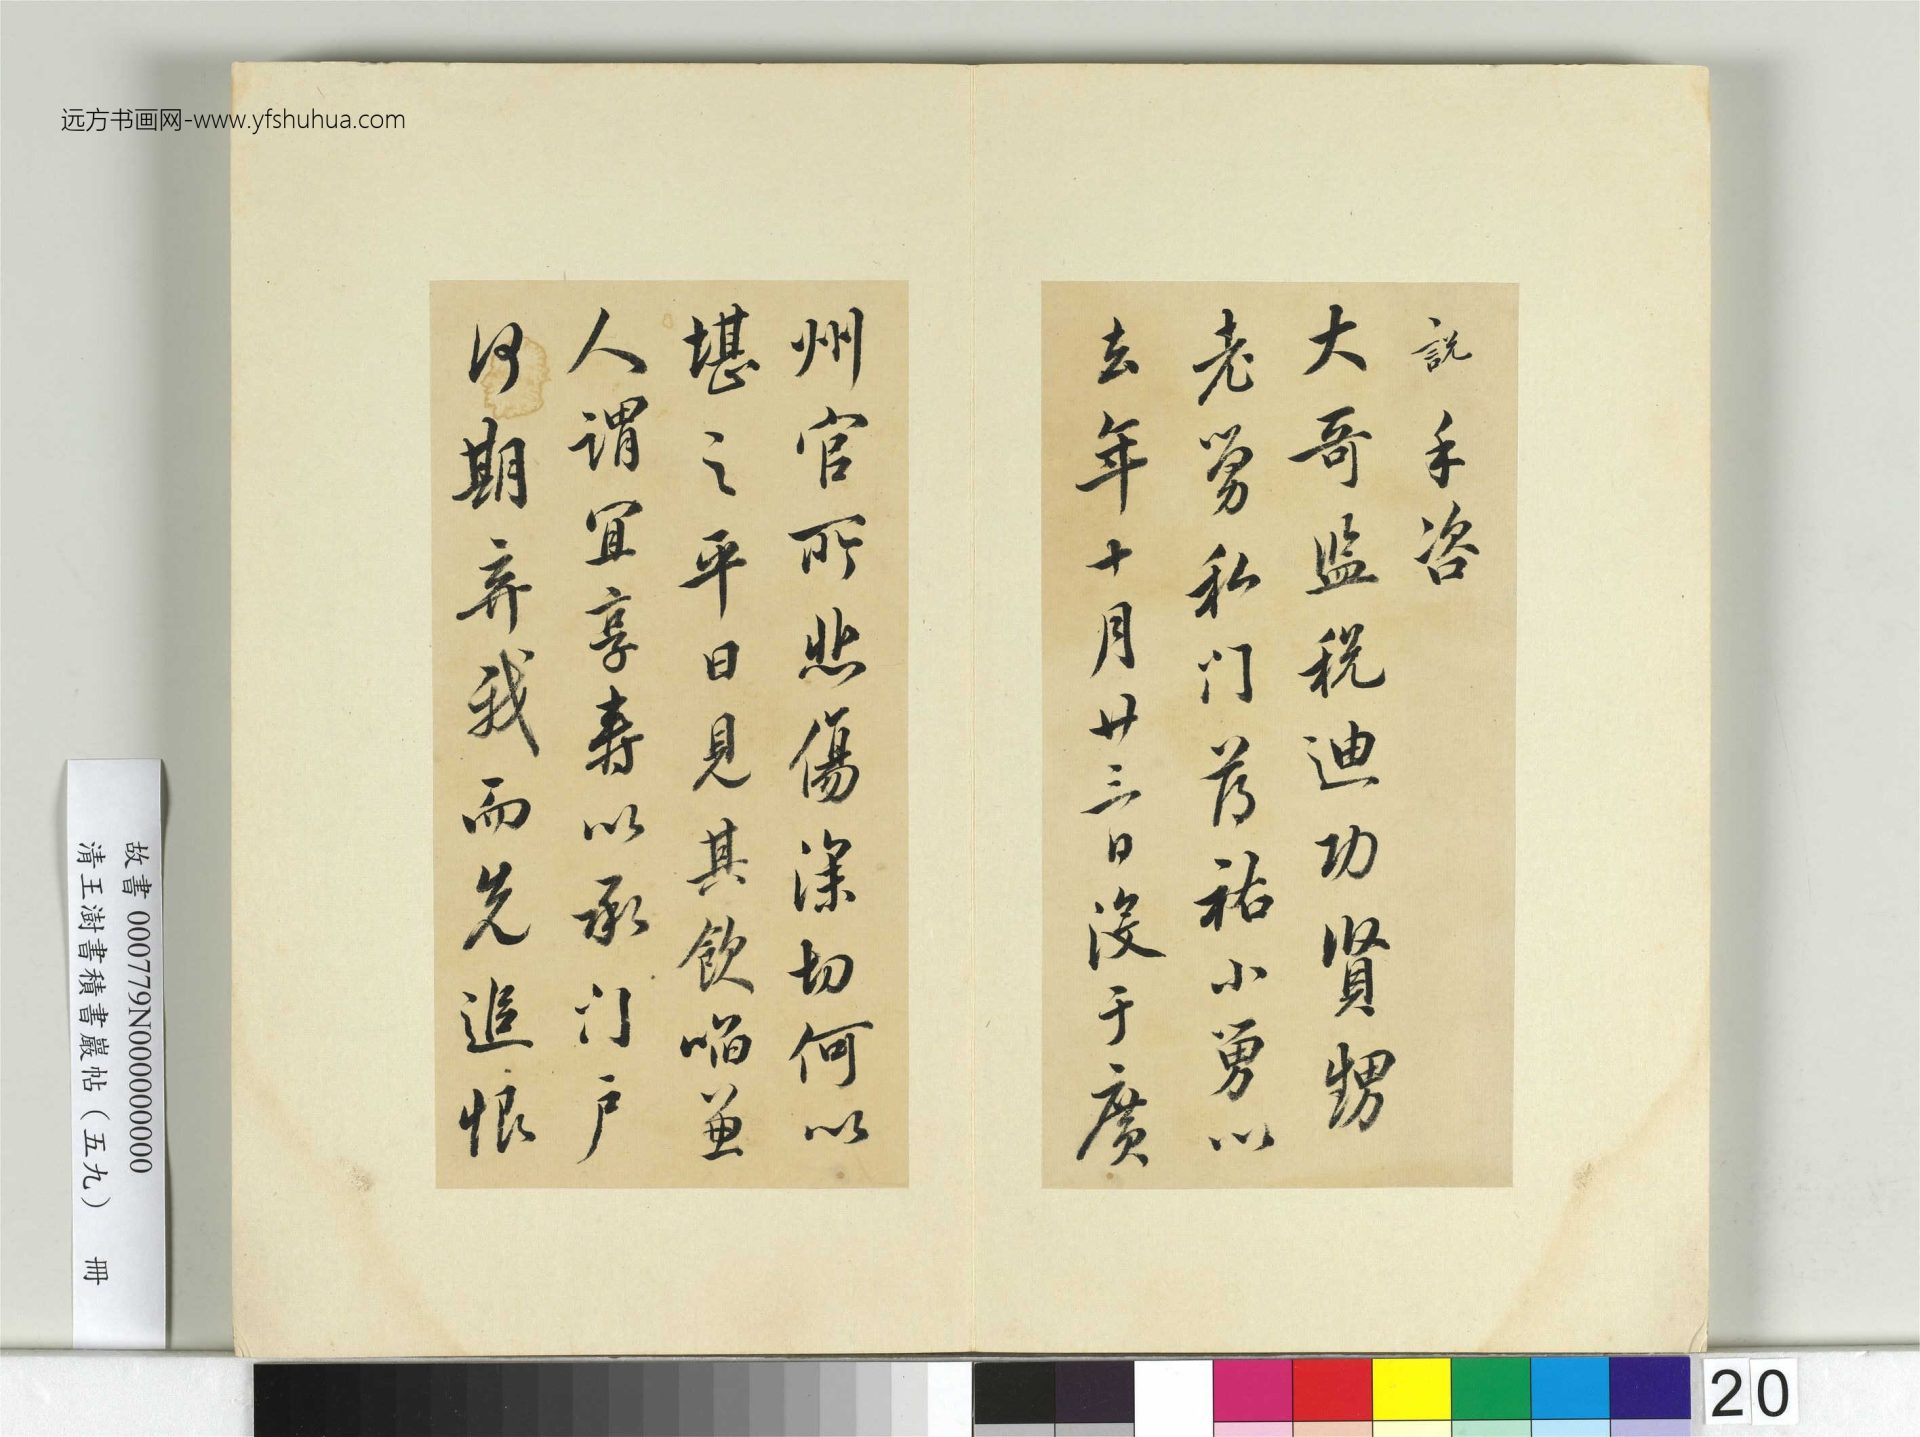 远方书画网-www.yfshuhua.com
説手咨
大哥监税迪功賢甥
老舅私门荐祐小舅以
去年十月廿三日没于廣
州官所悲傷深切何以
堪之平日見其飲啗兼
人謂宜享壽以承门户
何期弃我而先追恨
故書 000779N000000000
清王澍書積書巖帖（五九） 冊
20